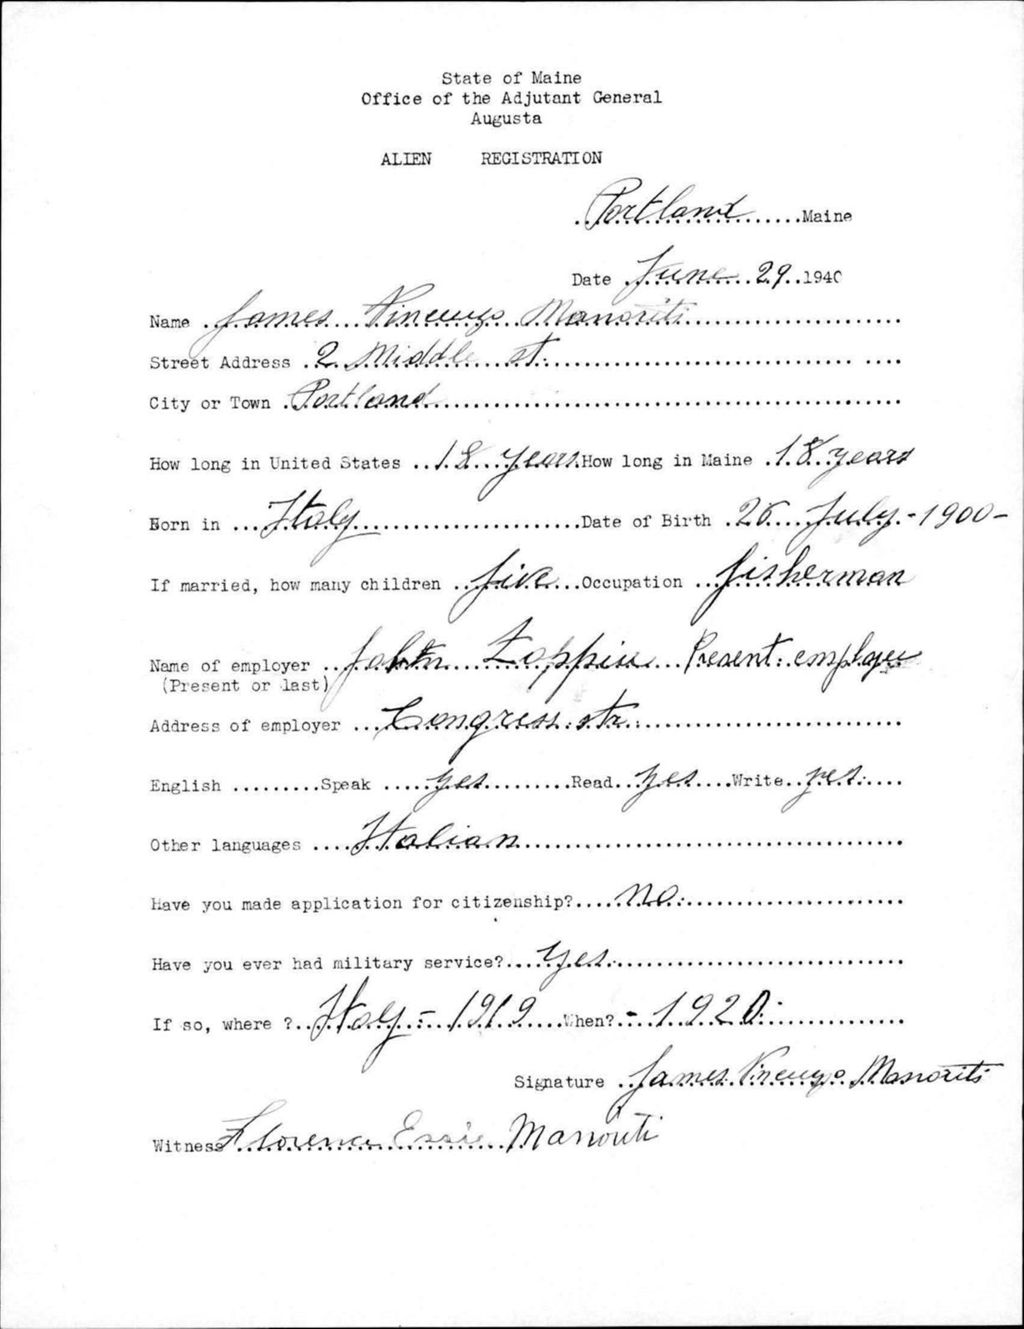 State of Maine
Office of the Adjutant General
Augusta
ALIEN REGISTRATION
Portland Maine
Date June 29 1940
Name James Vincenzo Manoriti
Street Address 2 Middle st.
City or Town Portland
How long in United States 18 years How long in Maine 18 years
Born in Italy Date of Birth 26 July - 1900 -
If married, how many children five Occupation fisherman
Name of employer John Present employer
(Present or last)
Address of employer Congress str.
English Speak yes Read yes Write yes
Other languages Italian
Have you made application for citizenship? no
Have you ever had military service? yes
If so, where ? Italy - 1919 When? - 1920
Signature James Vincenzo Manoriti
Witness Florence Essie Manoriti